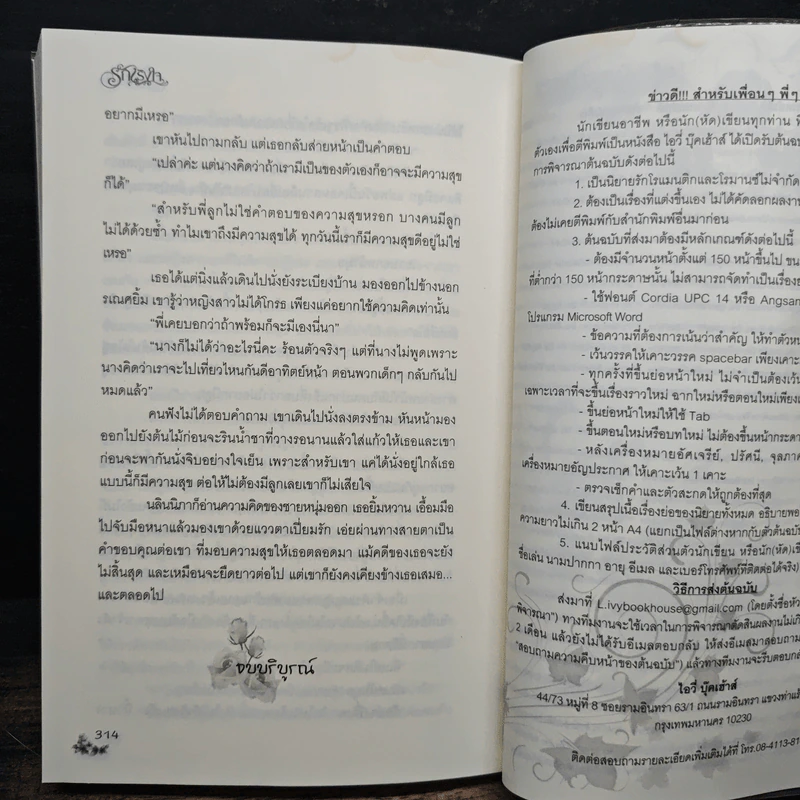 อยากมีเหรอ"
เขาหันไปถามกลับ แต่เธอกลับส่ายหน้าเป็นคำตอบ
"เปล่าค่ะ แต่นางคิดว่าถ้าเรามีเป็นของตัวเองก็อาจจะมีความสุข
ก็ได้"
"สำหรับพี่ลูกไม่ใช่คำตอบของความสุขหรอก บางคนมีลูก
ไม่ได้ด้วยซ้ำ ทำไมเขาถึงมีความสุขได้ ทุกวันนี้เราก็มีความสุขดีอยู่ไม่ใช่
เหรอ"
เธอได้แต่นิ่งแล้วเดินไปนั่งยังระเบียงบ้าน มองออกไปข้างนอก
รณเศยิ้ม เขารู้ว่าหญิงสาวไม่ได้โกรธ เพียงแค่อยากใช้ความคิดเท่านั้น
"พี่เคยบอกว่าถ้าพร้อมก็จะมีเองนี่นา"
"นางก็ไม่ได้ว่าอะไรนี่คะ ร้อนตัวจริงๆ แต่ที่นางไม่พูดเพราะ
นางคิดว่าเราจะไปเที่ยวไหนกันดีอาทิตย์หน้า ตอนพวกเด็กๆ กลับกันไป
หมดแล้ว"
คนฟังไม่ได้ตอบคำถาม เขาเดินไปนั่งลงตรงข้าม หันหน้ามอง
ออกไปยังต้นไม้ก่อนจะรินน้ำชาที่วางรอนานแล้วใส่แก้วให้เธอและเขา
ก่อนจะพากันนั่งจิบอย่างใจเย็น เพราะสำหรับเขา แค่ได้นั่งอยู่ใกล้เธอ
แบบนี้ก็มีความสุข ต่อให้ไม่ต้องมีลูกเลยเขาก็ไม่เสียใจ
นลินนิภาก็อ่านความคิดของชายหนุ่มออก เธอยิ้มหวาน เอื้อมมือ
ไปจับมือหนาแล้วมองเขาด้วยแววตาเปี่ยมรัก เอ่ยผ่านทางสายตาเป็น
คำขอบคุณต่อเขา ที่มอบความสุขให้เธอตลอดมา แม้คดีของเธอจะยัง
ไม่สิ้นสุด และเหมือนจะยืดยาวต่อไป แต่เขาก็ยังคงเคียงข้างเธอเสมอ...
และตลอดไป
จบบริบูรณ์
314
ข่าวดี!!! สำหรับเพื่อนๆ พี่ๆ
นักเขียนอาชีพ หรือนัก(หัด)เขียนทุกท่าน
ตัวเองเพื่อตีพิมพ์เป็นหนังสือ ไอวี่ บุ๊คเฮ้าส์ ได้เปิดรับต้นฉบ
การพิจารณาต้นฉบับดังต่อไปนี้
1. เป็นนิยายรักโรแมนติกและโรมานซ์ไม่จำกัด
2. ต้องเป็นเรื่องที่แต่งขึ้นเอง ไม่ได้คัดลอกผลงาน
ต้องไม่เคยตีพิมพ์กับสำนักพิมพ์อื่นมาก่อน
3. ต้นฉบับที่ส่งมาต้องมีหลักเกณฑ์ดังต่อไปนี้
- ต้องมีจำนวนหน้าตั้งแต่ 150 หน้าขึ้นไป
ที่ต่ำกว่า 150 หน้ากระดาษนั้น ไม่สามารถจัดทำเป็นเรื่อง
- ใช้ฟอนต์ Cordia UPC 14 หรือ Angsan
โปรแกรม Microsoft Word
- ข้อความที่ต้องการเน้นว่าสำคัญ ให้ทำตัวห
- เว้นวรรคให้เคาะวรรค spacebar เพียงเคาะ
- ทุกครั้งที่ขึ้นย่อหน้าใหม่ ไม่จำเป็นต้องเว้น
เฉพาะเวลาที่จะขึ้นเรื่องราวใหม่ ฉากใหม่หรือตอนใหม่เพียง
- ขึ้นย่อหน้าใหม่ให้ใช้ Tab
- ขึ้นตอนใหม่หรือบทใหม่ ไม่ต้องขึ้นหน้ากระดา
- หลังเครื่องหมายอัศเจรีย์, ปรัศนี, จุลภาค
เครื่องหมายอัญประกาศ ให้เคาะเว้น 1 เคาะ
- ตรวจเช็กคำและตัวสะกดให้ถูกต้องที่สุด
4. เขียนสรุปเนื้อเรื่องย่อของนิยายทั้งหมด อธิบายพอ
ความยาวไม่เกิน 2 หน้า A4 (แยกเป็นไฟล์ต่างหากกับตัวต้นฉบับ
5. แนบไฟล์ประวัติส่วนตัวนักเขียน หรือนัก(หัด)เขี
ชื่อเล่น นามปากกา อายุ อีเมล และเบอร์โทรศัพท์ที่ติดต่อได้จริง)
วิธีการส่งต้นฉบับ
ส่งมาที่ L.ivybookhouse@gmail.com (โดยตั้งชื่อหัว
พิจารณา") ทางทีมงานจะใช้เวลาในการพิจารณาตัดสินผลงานไม่เกิ
2 เดือน แล้วยังไม่ได้รับอีเมลตอบกลับ ให้ส่งอีเมลมาสอบถาม
"สอบถามความคืบหน้าของต้นฉบับ") แล้วทางทีมงานจะรีบตอบกล
ไอวี่ บุ๊คเฮ้าส์
44/73 หมู่ที่ 8 ซอยรามอินทรา 63/1 ถนนรามอินทรา แขวงท่าแร้
กรุงเทพมหานคร 10230
ติดต่อสอบถามรายละเอียดเพิ่มเติมได้ที่ โทร.08-4113-81